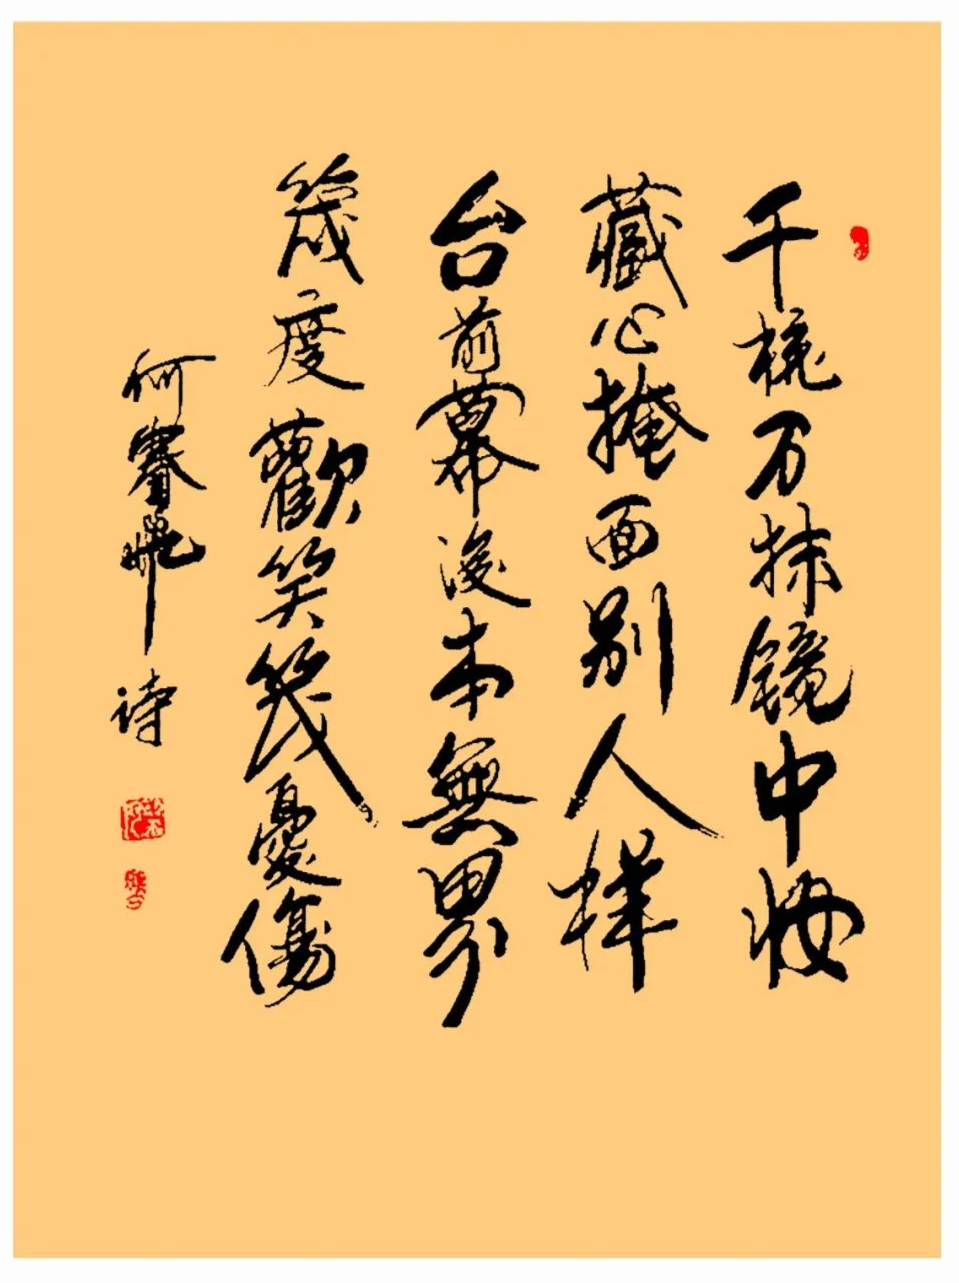 千梳万抹镜中妆
藏心掩面别人样
台前幕後本無界
笺度歡笑笺憂傷
何睿 诗